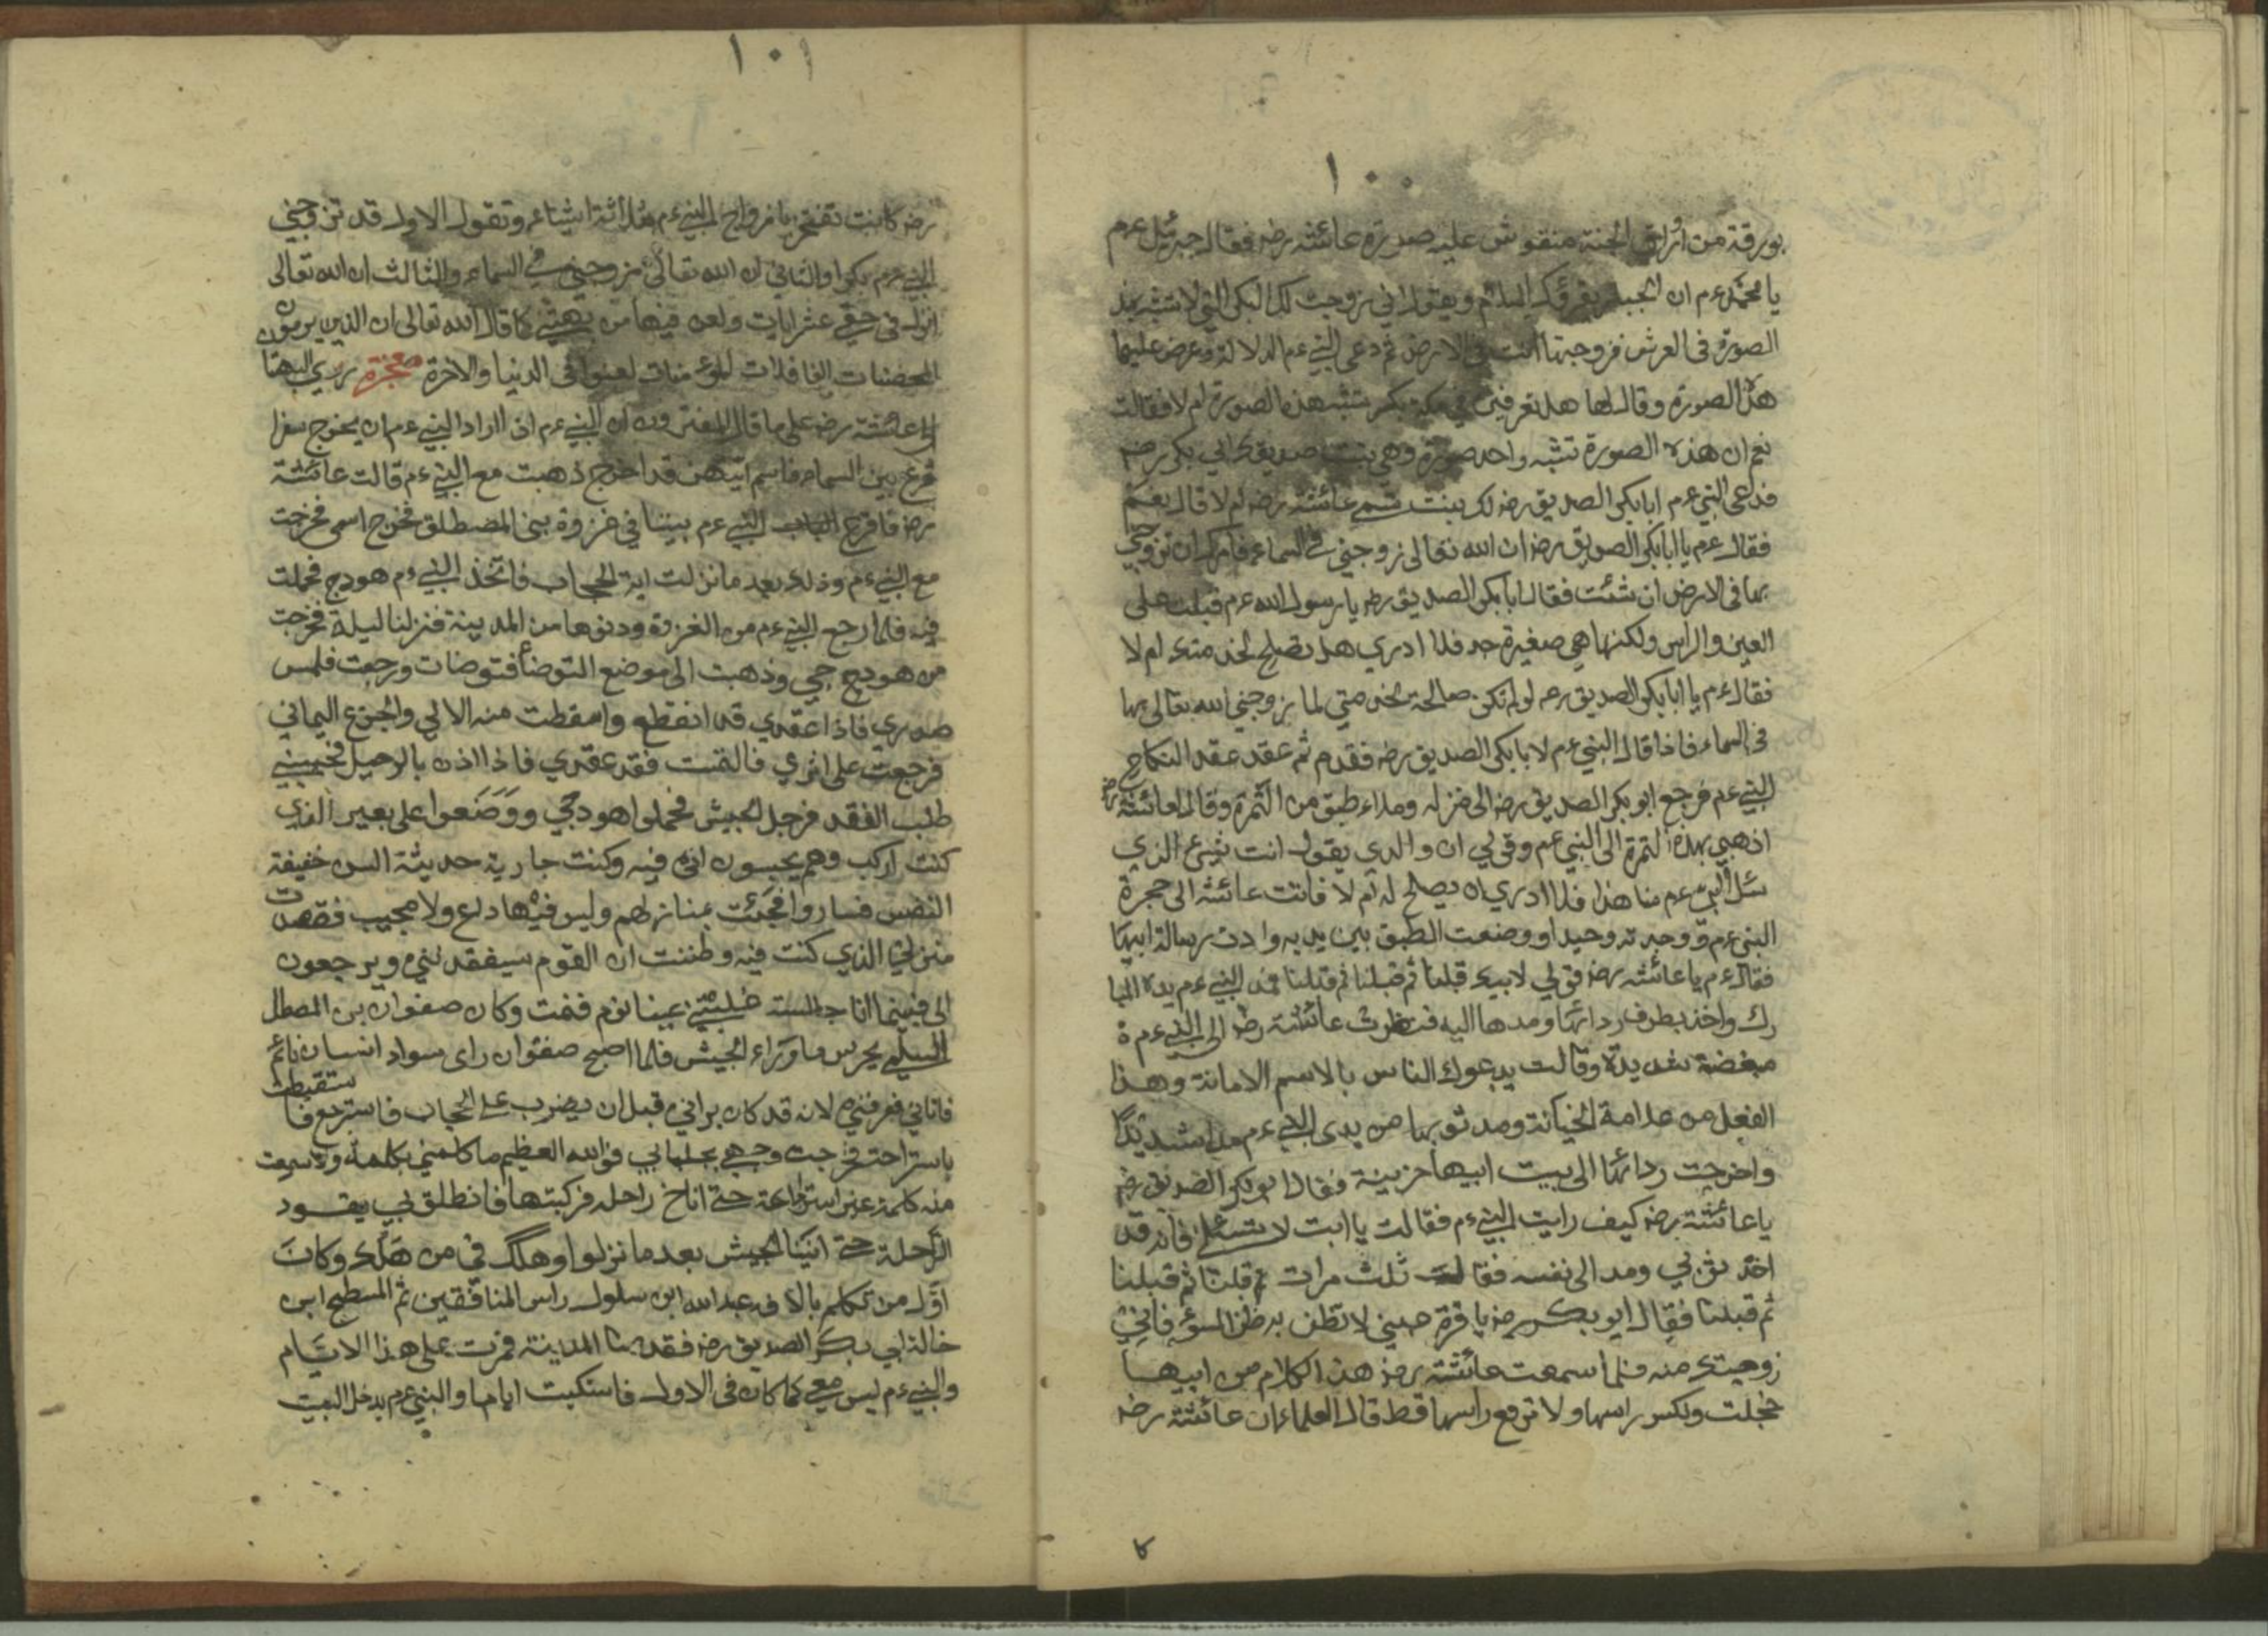 ١٠٠
بورقة من اوراق الجنة منقوش عليه صورة عائشة رضه فقال جبرئيل ءم
يا محمد ءم ان الجبار يقرؤك السلام ويقول اني زوجت لك البكر التي لا تشبه بهذ
الصورة فى العرش فزوجتها انت فى الارض ثم دعى النبي ءم الدلالة وعرض عليها
هذا الصورة وقال لها هل تعرفين في مكة بكر تشبه هذه الصورة ام لا فقالت
نعم ان هذه الصورة تشبه واحد صورة وهي بنت صديقك ابي بكر رضه
فدعى النبي ءم ابا بكر الصديق رضه لك بنت تسمى عائشة رضه ام لا قال نعم
فقال ءم يا ابا بكر الصديق رضه ان الله تعالى زوجني في السماء فامرك ان تزوجني
بها فى الارض ان شئت فقال ابا بكر الصديق رضه يا رسول الله ءم قبلت على
العين والراس ولكنها هي صغيرة جد فلا ادري هل تصلح لخدمتك ام لا
فقال ءم يا ابا بكر الصديق رضه لو لم تكن صالحة لخدمتي لما زوجني الله تعالى بها
فى السماء فاذا قال النبي ءم لابا بكر الصديق رضه فقدم ثم عقد عقد النكاح
النبي ءم فرجع ابو بكر الصديق رضه الى منزله وملاء طبق من الثمرة وقال لعائشة رضه
اذهبي بهذه التمرة الى النبي ءم وقولي ان والدي يقول انت شيئ الذي
سئل النبي ءم منا هذا فلا ادري ان يصلح له ام لا فاتت عائشه الى حجرة
النبي ءم ووجدته وحيدا ووضعت الطبق بين يديه وادت رسالة ابيها
فقال ءم يا عائشه رضه قولي لابيك قبلنا ثم قبلنا ثم قبلنا فمد النبي ءم يده المبا
رك واخذ بطرف ردائها ومدها اليه فنظرت عائشة رضه الى النبي ءم ة
مبغضة شديدة وقالت يدعوك الناس بالاسم الامانة وهذا
الفعل من علامة الخيانة ومد ثوبها من يدى النبي ءم مدا شديدا
واخرجت ردائها الى بيت ابيها حزينة فقال ابو بكر الصديق رضه
يا عائشة رضه كيف رايت النبي ءم فقالت يا ابت لا تسئلي فانه قد
اخذ ثوبي ومد الى نفسه فقال ثلث مرات ثم قبلنا ثم قبلنا
ثم قبلنا فقال ابو بكر رضه يا قرة عيني لا تظن به ظن السؤ فاني
زوجتك منه فلما سمعت عائشة رضه هذ الكلام من ابيها
خجلت ونكس راسها ولا ترفع راسها قط قال العلماء ان عائشة رضه
كا
١٠١
رضه كانت تفتخر بازواج النبي ءم بثلاثة اشياء وتقول الاول قد تزوجني
النبي ءم بكرا والثاني ان الله تعالى زوجني في السماء والثالث ان الله تعالى
انزل في حقي عشر ايات ولعن فيها من بهتني كما قال الله تعالى ان الذين يرمون
المحصنات الغافلات المؤمنات لعنوا فى الدنيا والاخرة معجزة روي البهتا
الى عائشة رضه على ما قال المفسرون ان النبي ءم اذا اراد النبي ءم ان يخرج سفرا
قرع بين السماء فاسم ايتهن قد اخرج ذهبت مع النبي ءم قالت عائشة
رضه فاقرع النبي ءم بيننا في غزوة بنى المصطلق فخرج اسمى فخرجت
مع النبي ءم وذلك بعد ما نزلت اية الحجاب فاتخذ النبي ءم هودج فحملت
فيه فلما رجع النبي ءم من الغزوة ودنوها من المدينة فنزلنا ليلة فخرجت
من هودجي وذهبت الى موضع التوضأ فتوضات ورجعت فلمس
صدري فاذا عقدي قد انقطع واسقطت منه الالي والجزع اليماني
فرجعت على اثري فالتمت فقد عقدي فاذا اذن بالرحيل فحبسني
طلب الفقد فرحل الجيش فحملوا هودجي ووضعوا على بعير الذي
كنت اركب وهم يحبسون اني فيه وكنت جارية حديثة السن خفيفة
النفس فساروا فجئت بمنازلهم وليس فيها داع ولا مجيب فقصدت
منزلي الذي كنت فيه وظننت ان القوم سيفقدنني ويرجعون
الى فبينما انا جالسة غلبتني عينا نوم فنمت وكان صفوان بن المعطل
السلمي يحرس ما وراء الجيش فلما اصبح صفوان راى سواد انسان نائم
فاتاني فعرفني لانه قد كان يراني قبل ان يضرب على الحجاب فاسترجع فاستقيظت
باستراحته فخرجت وجهي بجلبابي فوالله العظيم ما كلمني بكلمة ولا سمعت
منه كلمة غير استراجاعه حتى اناخ راحله فركبتها فانطلق بي يقود
الراحلة حتى اتينا الجيش بعد ما نزلوا وهلك في من هلك وكان
اول من تكلم بالافك عبد الله ابن سلول راس المنافقين ثم المسطح ابن
خالة ابي بكر الصديق رضه فقدمنا المدينة فمرت على هذا الايام
والنبي ءم ليس معي كما كان فى الاول فاستكيت اياما والنبي ءم يدخل البيت